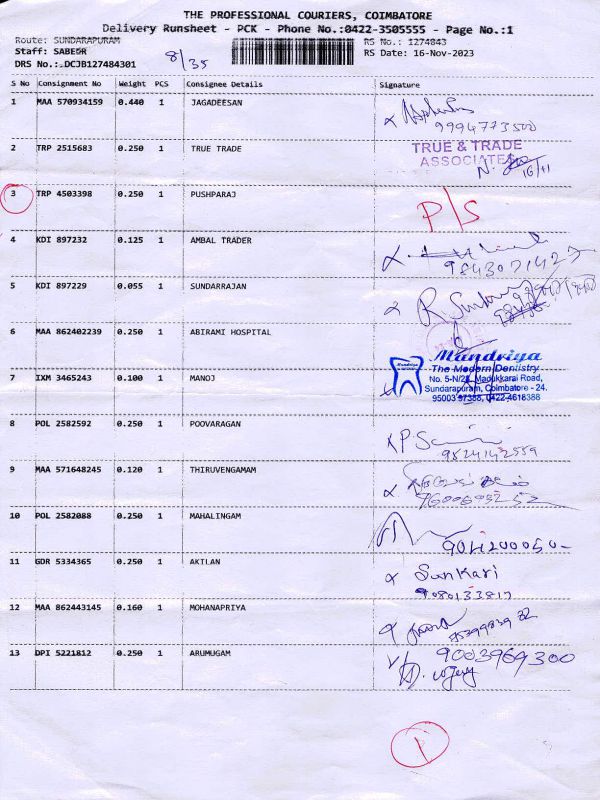 THE PROFESSIONAL COURIERS, COIMBATORE
Delivery Runsheet - PCK - Phone No.:0422-3505555 - Page No.:1
Route: SUNDARAPURAM
RS No.: 1274843
Staff: SABEER
8/35
RS Date: 16-Nov-2023
DRS No.:.DCJB127484301
S No Consignment No Weight PCS Consignee Details Signature
1 MAA 570934159 0.440 1 JAGADEESAN
9994773500
2 TRP 2515683 0.250 1 TRUE TRADE
TRUE & TRADE
ASSOCIATES
16/11
3 TRP 4503398 0.250 1 PUSHPARAJ
P/S
4 KDI 897232 0.125 1 AMBAL TRADER
9843071427
5 KDI 897229 0.055 1 SUNDARRAJAN
6 MAA 862402239 0.250 1 ABIRAMI HOSPITAL
Mandriya
The Modern Dentistry
7 IXM 3465243 0.100 1 MANOJ
No. 5-N/25, Madukkarai Road,
Sundarapuram, Coimbatore - 24.
95003 97388, 0422-4618388
8 POL 2582592 0.250 1 POOVARAGAN
9524142559
9 MAA 571648245 0.120 1 THIRUVENGAMAM
9600693252
10 POL 2582088 0.250 1 MAHALINGAM
9041200050-
11 GDR 5334365 0.250 1 AKILAN
Sunkari
9080133817
12 MAA 862443145 0.160 1 MOHANAPRIYA
13 DPI 5221812 0.250 1 ARUMUGAM
9003969300
1